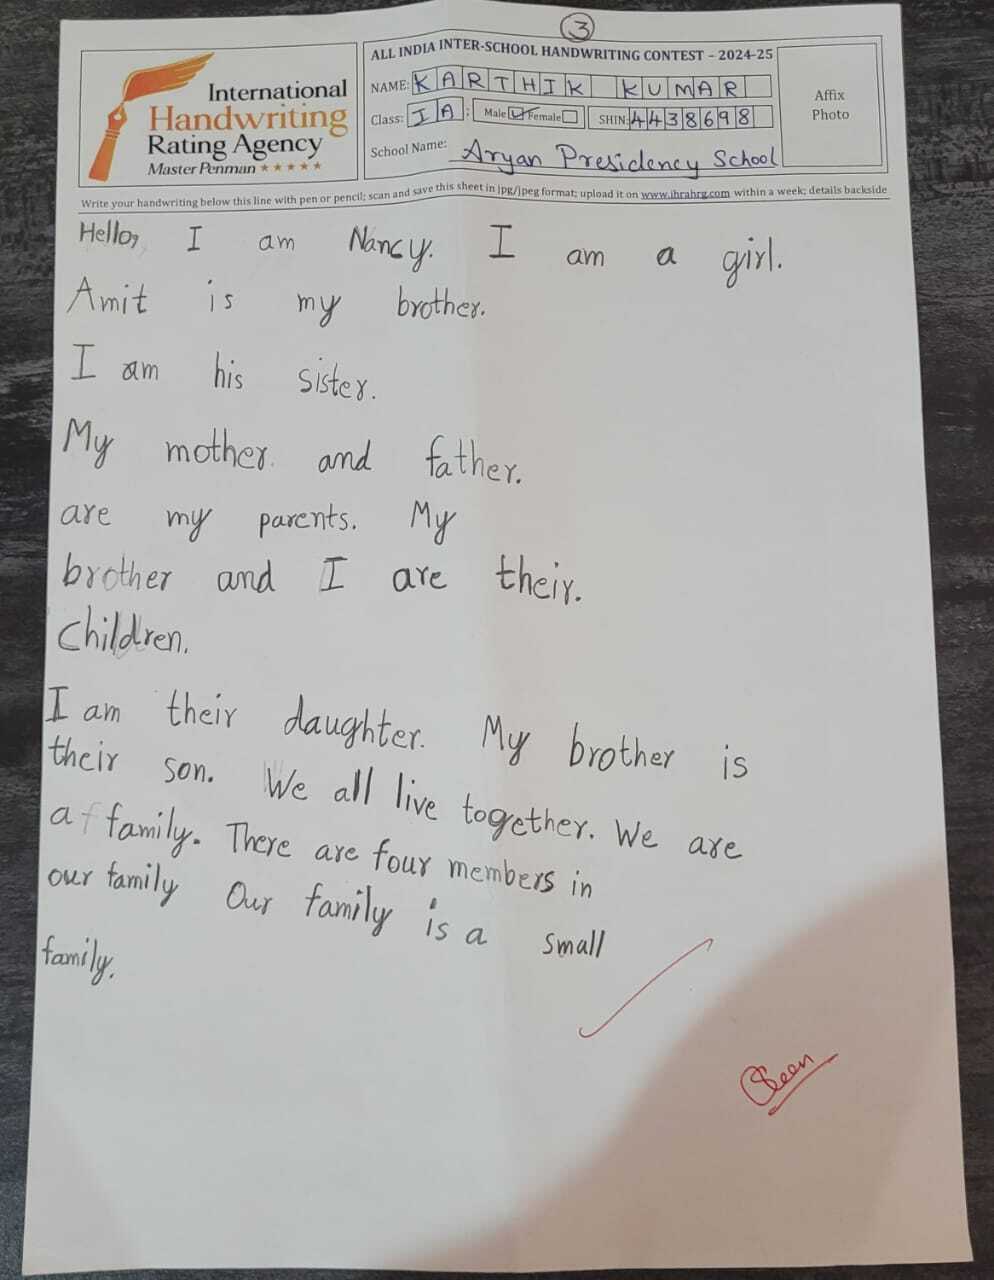 3
ALL INDIA INTER-SCHOOL HANDWRITING CONTEST – 2024-25
International
Handwriting
Rating Agency
Master Penman ★★★★★
NAME: KARTHIK KUMAR
Class: IA : Male Female SHIN: 4438698
School Name: Aryan Presidency School
Affix
Photo
Write your handwriting below this line with pen or pencil; scan and save this sheet in jpg/jpeg format; upload it on www.ihrahrg.com within a week; details backside
Hello, I am Nancy. I am a girl.
Amit is my brother.
I am his sister.
My mother. and father.
are my parents. My
brother and I are their.
Children.
I am their daughter. My brother is
their son. We all live together. We are
a family. There are four members in
our family Our family is a small
family.
Seen